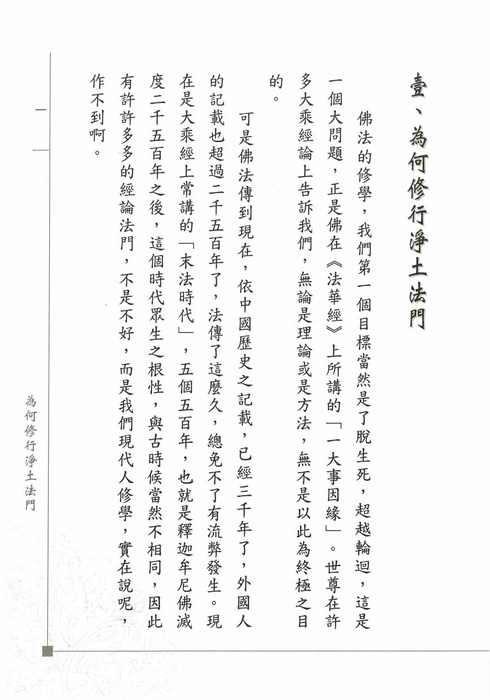 壹、為何修行淨土法門
佛法的修學，我們第一個目標當然是了脫生死，超越輪迴，這是
一個大問題，正是佛在《法華經》上所講的「一大事因緣」。世尊在許
多大乘經論上告訴我們，無論是理論或是方法，無不是以此為終極之目
的。
可是佛法傳到現在，依中國歷史之記載，已經三千年了，外國人
的記載也超過二千五百年了，法傳了這麼久，總免不了有流弊發生。現
在是大乘經上常講的「末法時代」，五個五百年，也就是釋迦牟尼佛滅
度二千五百年之後，這個時代眾生之根性，與古時候當然不相同，因此
有許許多多的經論法門，不是不好，而是我們現代人修學，實在說呢，
作不到啊。
一
為何修行淨土法門